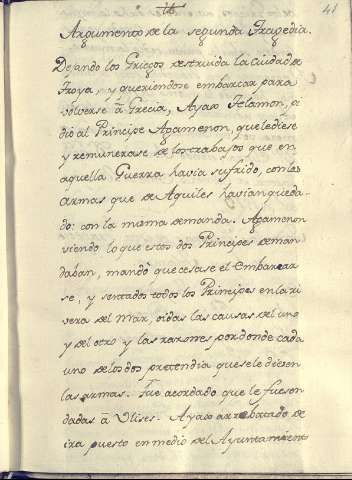 41
Argumento de la segunda Tragedia.
Dejando los Griegos destruida la Ciudad de
Troya, y queriendose embarcar para
volverse â Grecia, Ayax Telamon, pi
dió al Principe Agamenon, que le diese
y remunerase de los trabajos que en
aquella Guerra havia sufrido, con las
armas que de Aquiles havian queda-
do: con la misma demanda. Agamenon
viendo lo que estos dos Principes deman
daban, mandó que cesase el Embarcar
se, y sentados todos los Principes en la ri
vera del Mar, oidas las causas del uno
y del otro y las razones por donde cada
uno de los dos pretendia que se le diesen
las armas. Fue acordado que le fuesen
dadas â Ulises. Ayax arrebatado de
ira puesto en medio del Ayuntamiento